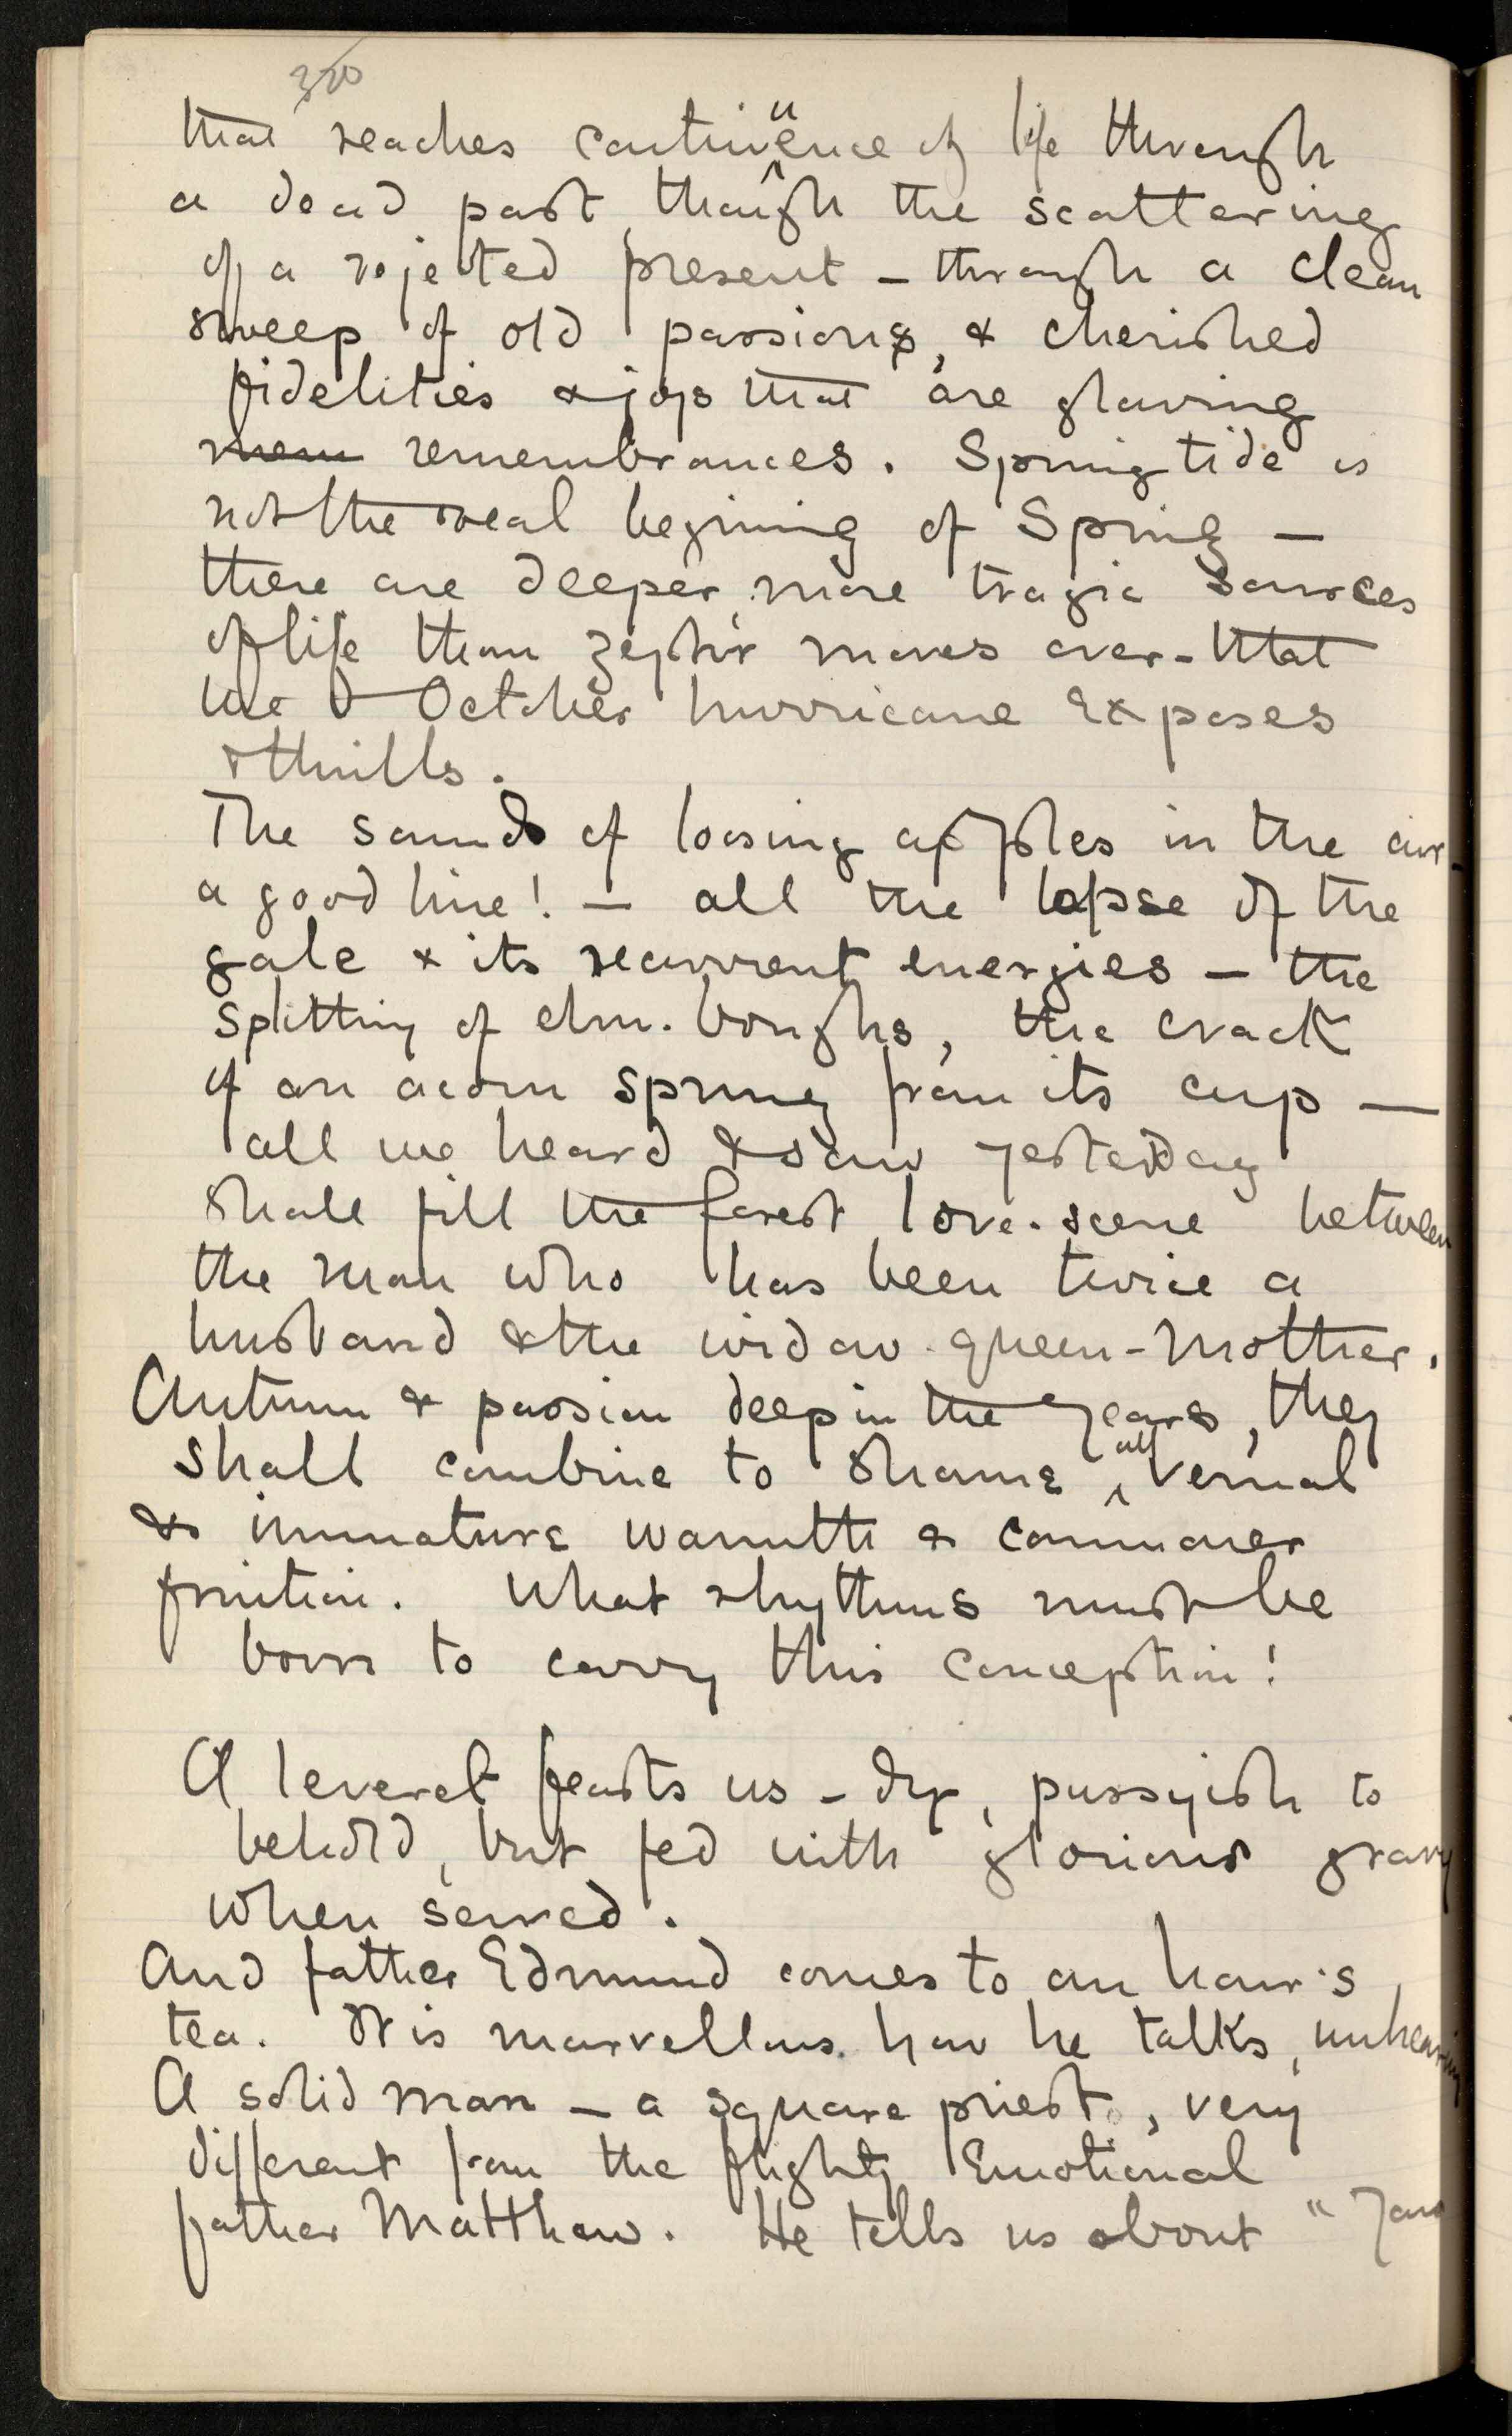 320
that reaches continuence of life through
a dead past, though the scattering
of a rejected present – through a clean
sweep of old passions, & cherished
fidelities & joys that are glowing
mem remembrances. Spring tide is
not the real begining of Spring –
there are deeper, more tragic sources
of life than zephir moves over – that
the October hurricane exposes
& thrills.
The sounds of loosing apples in the air –
a good line! – all the lapse of the
gale & its recurrent energies – the
splitting of elm-boughs, the crack
of an acorn sprung from its cup –
all we heard & saw yesterday
shall fill the forest love-scene between
the man who has been twice a
husband & the widow-queen-mother.
Autumn & passion deep in the years, they
shall combine to shame all vernal
& immature warmth & commoner
fruition. What rhythms must be
born to carry this conception!
A leveret feasts us – dry, pussyish to
behold, but fed with glorious gravy
when served.
And father Edmund comes to an hour's
tea. It is marvellous how he talks, unhearing
A solid man – a square priest, very
different from the flighty emotional
father Matthew. He tells us about "